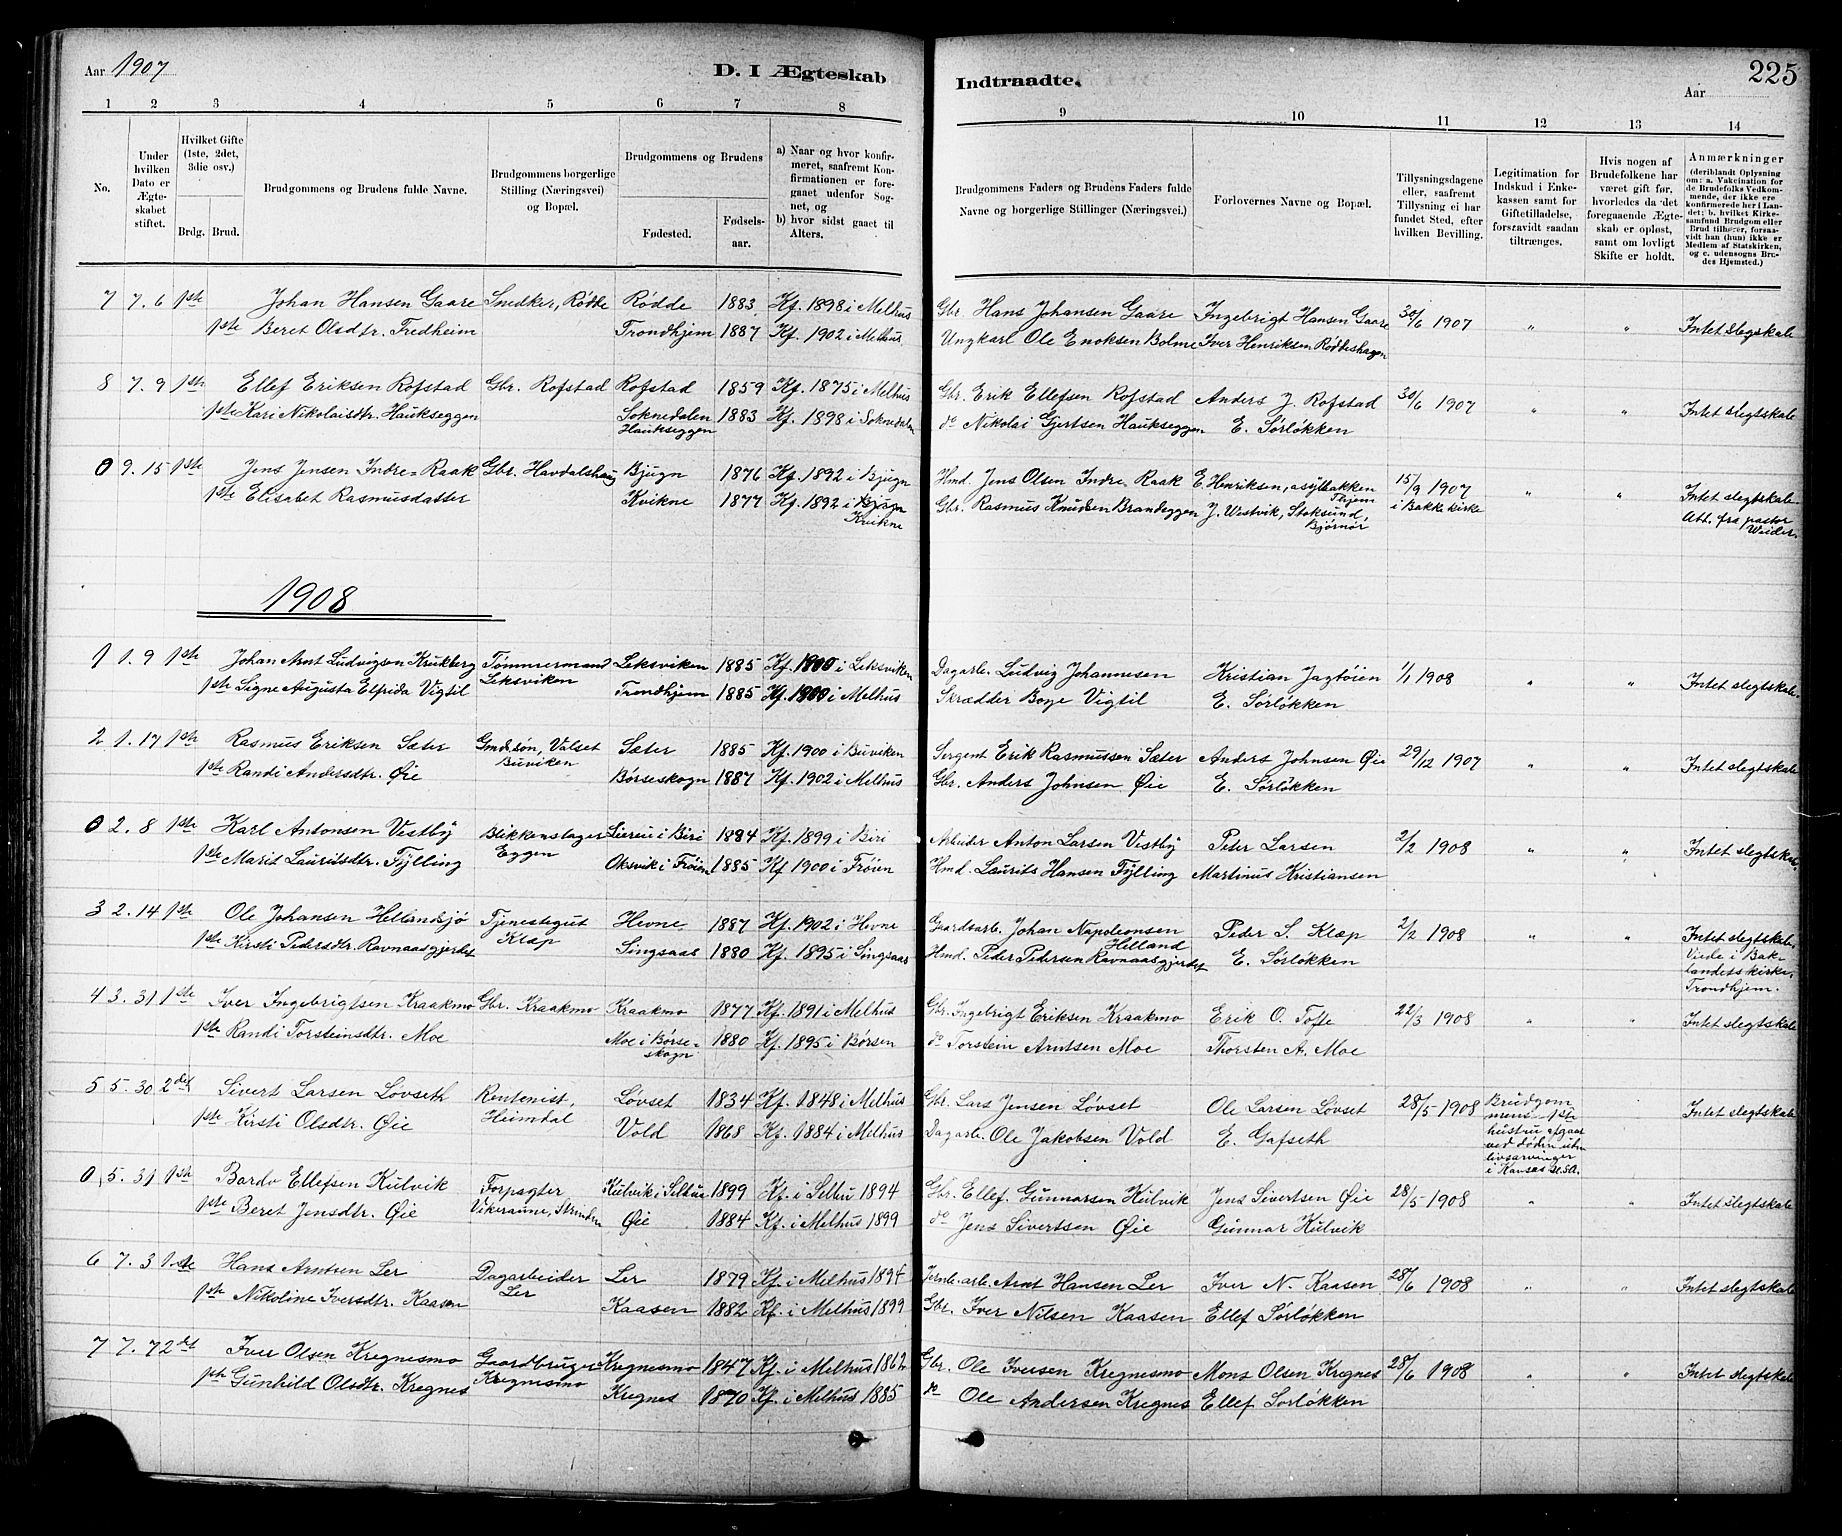 Aar 1907
D. I Ægteskab
Indtraadte.
Aar
225
1 2 3 4 5 6 7 8 9 10 11 12 13 14
No.
Under hvilken Dato er Ægteskabet stiftet.
Hvilket Gifte (1ste, 2det, 3die osv.)
Brdg. Brud.
Brudgommens og Brudens fulde Navne.
Brudgommens borgerlige Stilling (Næringsvei) og Bopæl.
Brudgommens og Brudens
Fødested.
Fødselsaar.
a) Naar og hvor konfirmeret, saafremt Konfirmationen er foregaaet udenfor Sognet, og
b) hvor sidst gaaet til Alters.
Brudgommens Faders og Brudens Faders fulde Navne og borgerlige Stillinger (Næringsvei.)
Forlovernes Navne og Bopæl.
Tillysningsdagene eller, saafremt Tillysning ei har fundet Sted, efter hvilken Bevilling.
Legitimation for Indskud i Enkekassen samt for Giftetilladelse, forsaavidt saadan tiltrænges.
Hvis nogen af Brudefolkene har været gift før, hvorledes da det foregaaende Ægteskab er opløst, samt om lovligt Skifte er holdt.
Anmærkninger (deriblandt Oplysning om: a. Vakcination for de Brudefolks Vedkommende, der ikke ere konfirmerede her i Landet; b. hvilket Kirkesamfund Brudgom eller Brud tilhører, forsaavidt han (hun) ikke er Medlem af Statskirken, og c. udensogns Brudes Hjemsted.)
7 7.6 1ste Johan Hansen Gaare Snedker, Rødde Rødde 1883 Kf. 1898 i Melhus Gbr. Hans Johansen Gaare Ingebrigt Hansen Gaare 30/6 1907 " " Intet slegtskab
1ste Beret Olsdtr. Fredheim Trondhjem 1887 Kf. 1902 i Melhus Ungkarl Ole Enoksen Bolme Iver Henriksen Røddeshagen
8 7.9 1ste Ellef Eriksen Rofstad Gbr. Rofstad Rofstad 1859 Kf. 1875 i Melhus Gbr. Erik Ellefsen Rofstad Anders J. Rofstad 30/6 1907 " " Intet slegtskab
1ste Kari Nikolaisdtr. Haukseggen Soknedalen Haukseggen 1883 Kf. 1898 i Soknedalen do Nikolai Gjertsen Haukseggen E. Sørløkken
0 9.15 1ste Jens Jensen Indre-Raak Gbr. Havdalshaug Bjugn 1876 Kf. 1892 i Bjugn Hmd. Jens Olsen Indre Raak E. Henriksen, asylbakken Thjem 15/9 1907 " " Intet slegtskab
1ste Elisabet Rasmusdatter Kvikne 1877 Kf. 1892 i Bjugn Kvikne Gbr. Rasmus Knudsen Brandeggen J. Westvik, Stoksund, Bjørnør i Bakke kirke Att. fra pastor
1908
1 1.9 1ste Johan Arnt Ludvigsen Krukberg Tømmermand Leksviken Leksviken 1885 Kf. 1900 i Leksviken Dagarb. Ludvig Johannesen Kristian Jagtøien 1/1 1908 " " Intet slegtskab
1ste Signe Augusta Elfrida Vigtil Trondhjem 1885 Kf. 1900 i Melhus Skrædder Boye Vigtil E. Sørløkken
2 1.17 1ste Rasmus Eriksen Sæter Gmdssøn, Valset Buviken Sæter 1885 Kf. 1900 i Buviken Sergent Erik Rasmussen Sæter Anders Johnsen Øie 29/12 1907 " " Intet slegtskab
1ste Randi Andersdtr. Øie Børseskogn 1887 Kf. 1902 i Melhus Gbr. Anders Johnsen Øie E. Sørløkken
0 2.8 1ste Karl Antonsen Vestby Blikkenslager Eggen i Biri 1884 Kf. 1899 i Biri Arbeider Anton Larsen Vestby Peder Larsen 2/2 1908 " " Intet slegtskab
1ste Marit Lauritsdtr. Fylling Oksvik i Frøien 1885 Kf 1900 i Frøien Hmd. Laurits Hansen Fylling Martinus Kristiansen
3 2.14 1ste Ole Johansen Hellandsjø Tjenestegut Klæp Hevne 1887 Kf. 1902 i Hevne Gaardsarb. Johan Napoleonsen Helland Peder S. Klæp 2/2 1908 " " Intet slegtskab.
1ste Kirsti Pedersdtr. Ravnaasgjerdet Singsaas 1880 Kf. 1895 i Singsaas Hmd. Peder Pedersen Ravnaasgjerdet E. Sørløkken Viede i Baklandets kirke, Trondhjem.
4 3.31 1ste Iver Ingebrigtsen Kraakmo Gbr. Kraakmo Kraakmo 1877 Kf. 1891 i Melhus Gbr. Ingebrigt Eriksen Kraakmo Erik O. Tofte 22/3 1908 " " Intet slegtskab
1ste Randi Torsteinsdtr. Moe Moe i Børseskogn 1880 Kf. 1895 i Børsen do Torstein Arntsen Moe Thorsten A. Moe
5 5.30 2det Sivert Larsen Løvseth Rentenist, Heimdal Løvset 1834 Kf. 1848 i Melhus Gbr. Lars Jensen Løvset Ole Larsen Løvset 28/5 1908 Brudgommens 1ste hustru afgaar ved døden livsarvinger i Kansas U.S.A. Intet slegtskab
1ste Kirsti Olsdtr. Øie Vold 1868 Kf. 1884 i Melhus Dagarb. Ole Jakobsen Vold E. Gafseth
0 5.31 1ste Bardo Ellefsen Kulvik Forpagter Vikeraune, Strinden Kulvik i Selbu 1899 Kf. i Selbu 1894 Gbr. Ellef Gunnarsen Kulvik Jens Sivertsen Øie 28/5 1908 " " Intet slegtskab
1ste Beret Jensdtr. Øie Øie 1884 Kf. i Melhus 1899 do Jens Sivertsen Øie Gunnar Kulvik
6 7.3 1ste Hans Arntsen Ler Dagarbeider Ler Ler 1879 Kf. i Melhus 1894 Jernb. arb. Arnt Hansen Ler Iver N. Kaasen 28/6 1908 " " Intet slegtskab
1ste Nikoline Iversdtr. Kaasen Kaasen 1882 Kf. i Melhus 1899 Gbr. Iver Nilsen Kaasen Ellef Sørløkken
7 7.7 2det Iver Olsen Kregnesmo Gaardbruger Kregnesmo Kregnesmo 1847 Kf. i Melhus 1862 Gbr. Ole Iversen Kregnesmo Mons Olsen Kregnes 28/6 1908 " " Intet slegtskab
1ste Gunhild Olsdtr. Kregnes Kregnes 1870 Kf. i Melhus 1885 do Ole Andersen Kregnes Ellef Sørløkken